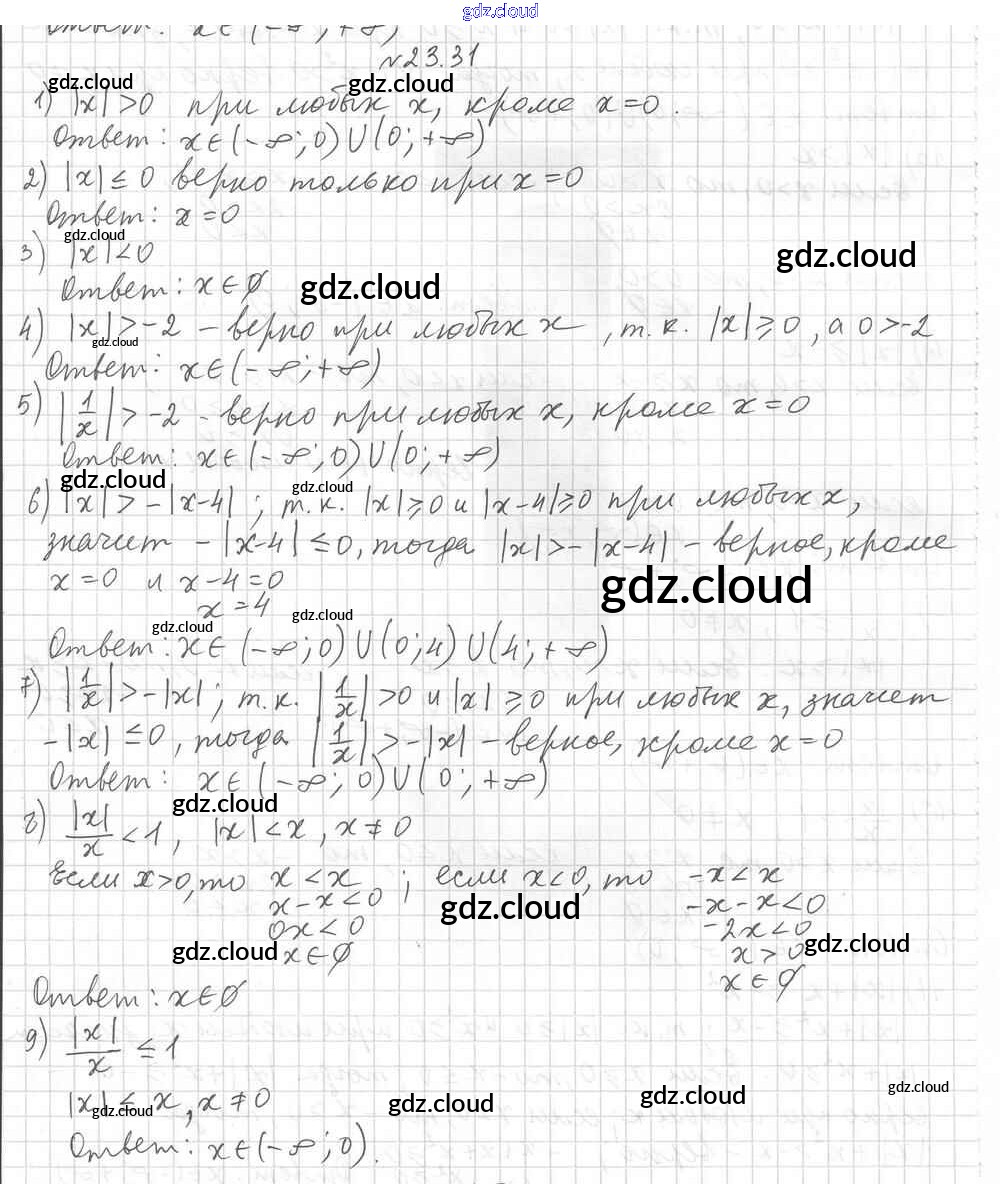 gdz.cloud
Ответ: x∈(-∞; +∞)
№23.31
gdz.cloud gdz.cloud
1) |x|>0 при любых x, кроме x=0.
Ответ: x∈(-∞; 0)∪(0; +∞)
2) |x|≤0 верно только при x=0
Ответ: x=0
gdz.cloud
3) |x|<0
gdz.cloud
Ответ: x∈∅ gdz.cloud
4) |x|>-2 - верно при любых x, т.к. |x|≥0, а 0>-2
gdz.cloud
Ответ: x∈(-∞; +∞)
5) |1/x|>-2 - верно при любых x, кроме x=0
Ответ: x∈(-∞; 0)∪(0; +∞)
gdz.cloud gdz.cloud
6) |x|>-|x-4|; т.к. |x|≥0 и |x-4|≥0 при любых x,
значит -|x-4|≤0, тогда |x|>-|x-4| - верное, кроме
x=0 и x-4=0
gdz.cloud
x=4
gdz.cloud gdz.cloud
Ответ: x∈(-∞; 0)∪(0; 4)∪(4; +∞)
7) |1/x|>-|x|; т.к. |1/x|>0 и |x|≥0 при любых x, значит
-|x|≤0, тогда |1/x|>-|x| - верное, кроме x=0
Ответ: x∈(-∞; 0)∪(0; +∞)
gdz.cloud
8) |x|/x<1, |x|<x, x≠0
Если x>0, то x<x; если x<0, то -x<x
x-x<0 -x-x<0
gdz.cloud
0x<0 -2x<0
gdz.cloud x∈∅ x>0 gdz.cloud
x∈∅
Ответ: x∈∅
9) |x|/x≤1
|x|≤x, x≠0
gdz.cloud gdz.cloud gdz.cloud gdz.cloud
Ответ: x∈(-∞; 0).